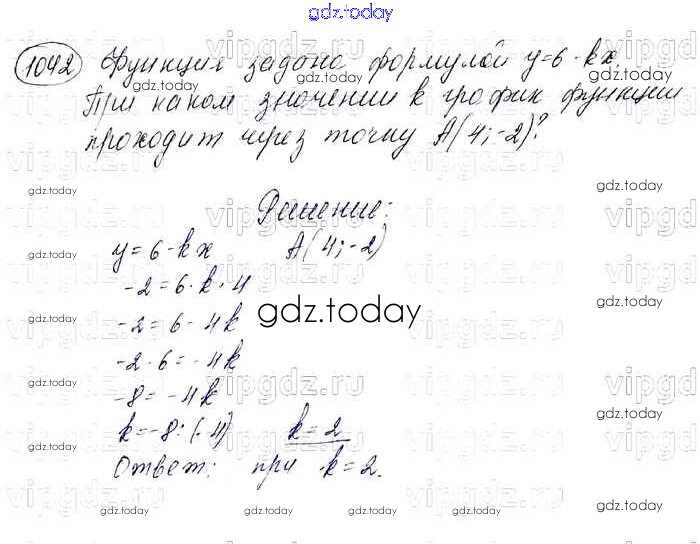 gdz.today
1042 Функция задана формулой y=6-kx.
При каком значении k график функции
проходит через точку A(4;-2)?
Решение:
y=6-kx A(4;-2)
-2=6-k·4
-2=6-4k
-2-6=-4k
-8=-4k
k=-8:(-4) k=2
Ответ: при k=2.
gdz.today